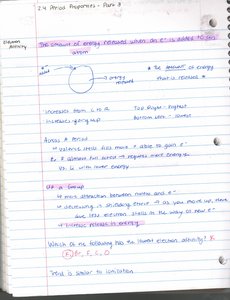 2.4 Period Properties - Part 3
Electron
Affinity
The amount of energy released when an e⁻ is added to an
atom
e⁻
added
energy
released
* the amount of energy
that is released *
Increases from L to R
Increases going up
Top Right - highest
Bottom left - lowest
Across a Period
valence shells fills more & able to gain e⁻
Ex. F almost full octet → requires more energy
vs. Li with lower energy
Up a Group
more attraction between nucleus and e⁻
shielding effect → as you move up, there
are less electron shells in the way of new e⁻
increase release in energy
Which of the following has the lowest electron affinity?
F, C, O
This is similar to ionization